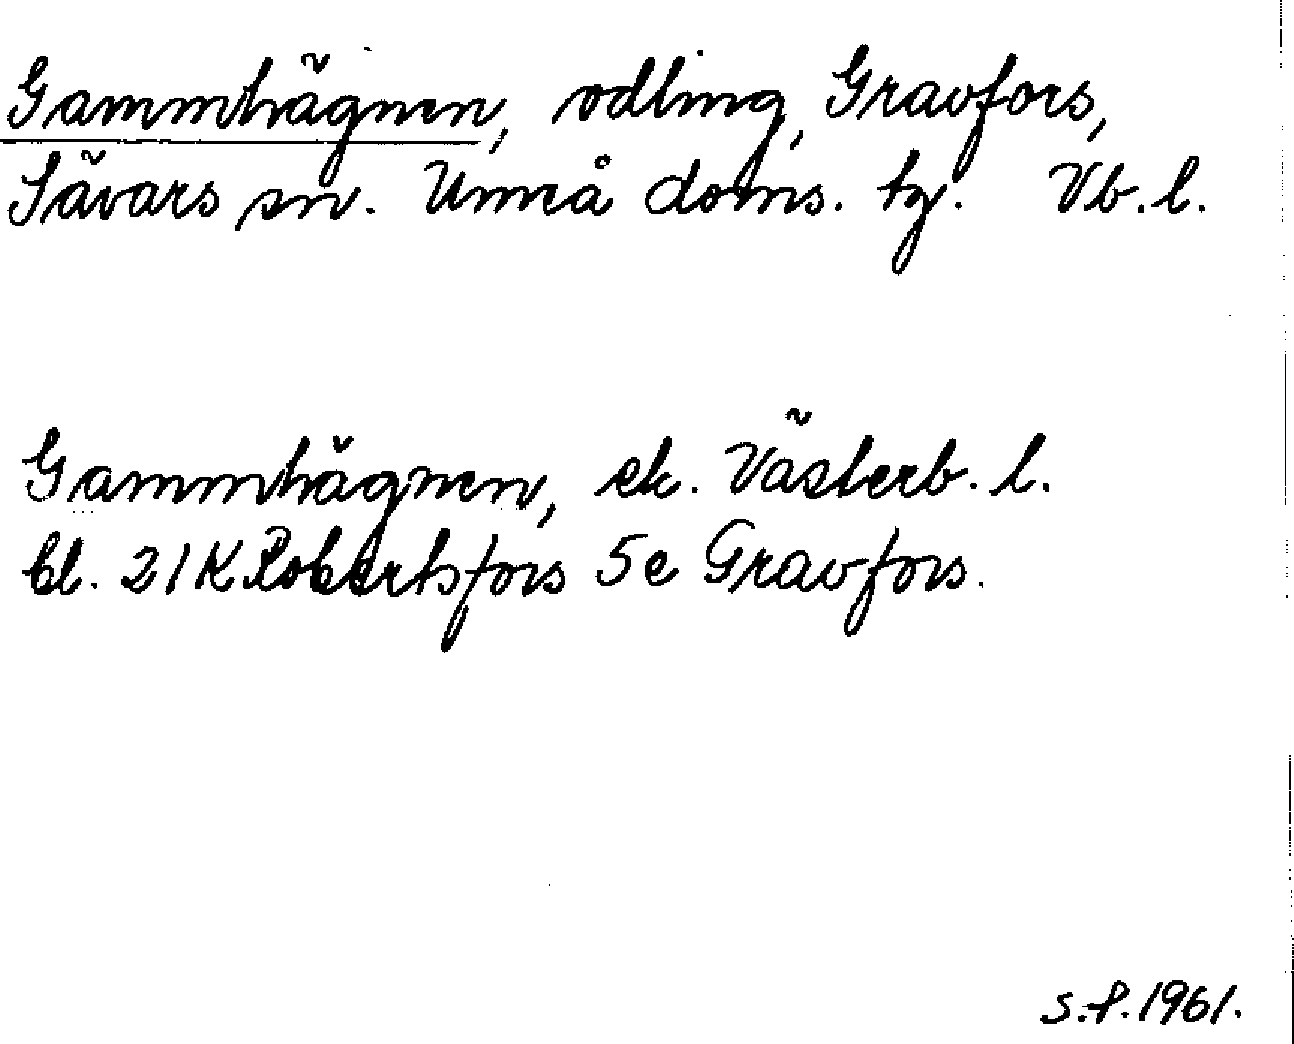 Gammhägnen, odling, Gravfors,
Sävars sn. Umeå doms. tg. Vb. l.
Gammhägnen, ek. Västerb. l.
bl. 21K Robertsfors 5e Gravfors.
S.P. 1961.